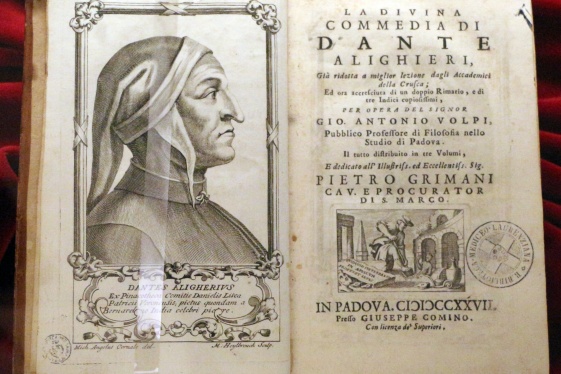 DANTES ALIGHERIVS
Ex Pinacotheca Comitis Danielis Lisca
Patricii Veronensis, pictus quondam a
Bernardino India celebri pictore.
Mich. Angelus Cornale del.
M. Heylbrouck Sculp.
LA DIVINA
COMMEDIA DI
DANTE
ALIGHIERI,
Già ridotta a miglior lezione dagli Accademici
della Crusca;
Ed ora accresciuta di un doppio Rimario, e di
tre Indici copiosissimi,
PER OPERA DEL SIGNOR
GIO. ANTONIO VOLPI,
Pubblico Professore di Filosofia nello
Studio di Padova.
Il tutto distribuito in tre Volumi,
E dedicato all' Illustriss. ed Eccellentiss. Sig.
PIETRO GRIMANI
CAV. E PROCURATOR
DI S. MARCO.
MEDICEO-LAURENZIANA
IN PADOVA. CIƆIƆCCXXVII.
Presso GIUSEPPE COMINO.
Con licenza de' Superiori.